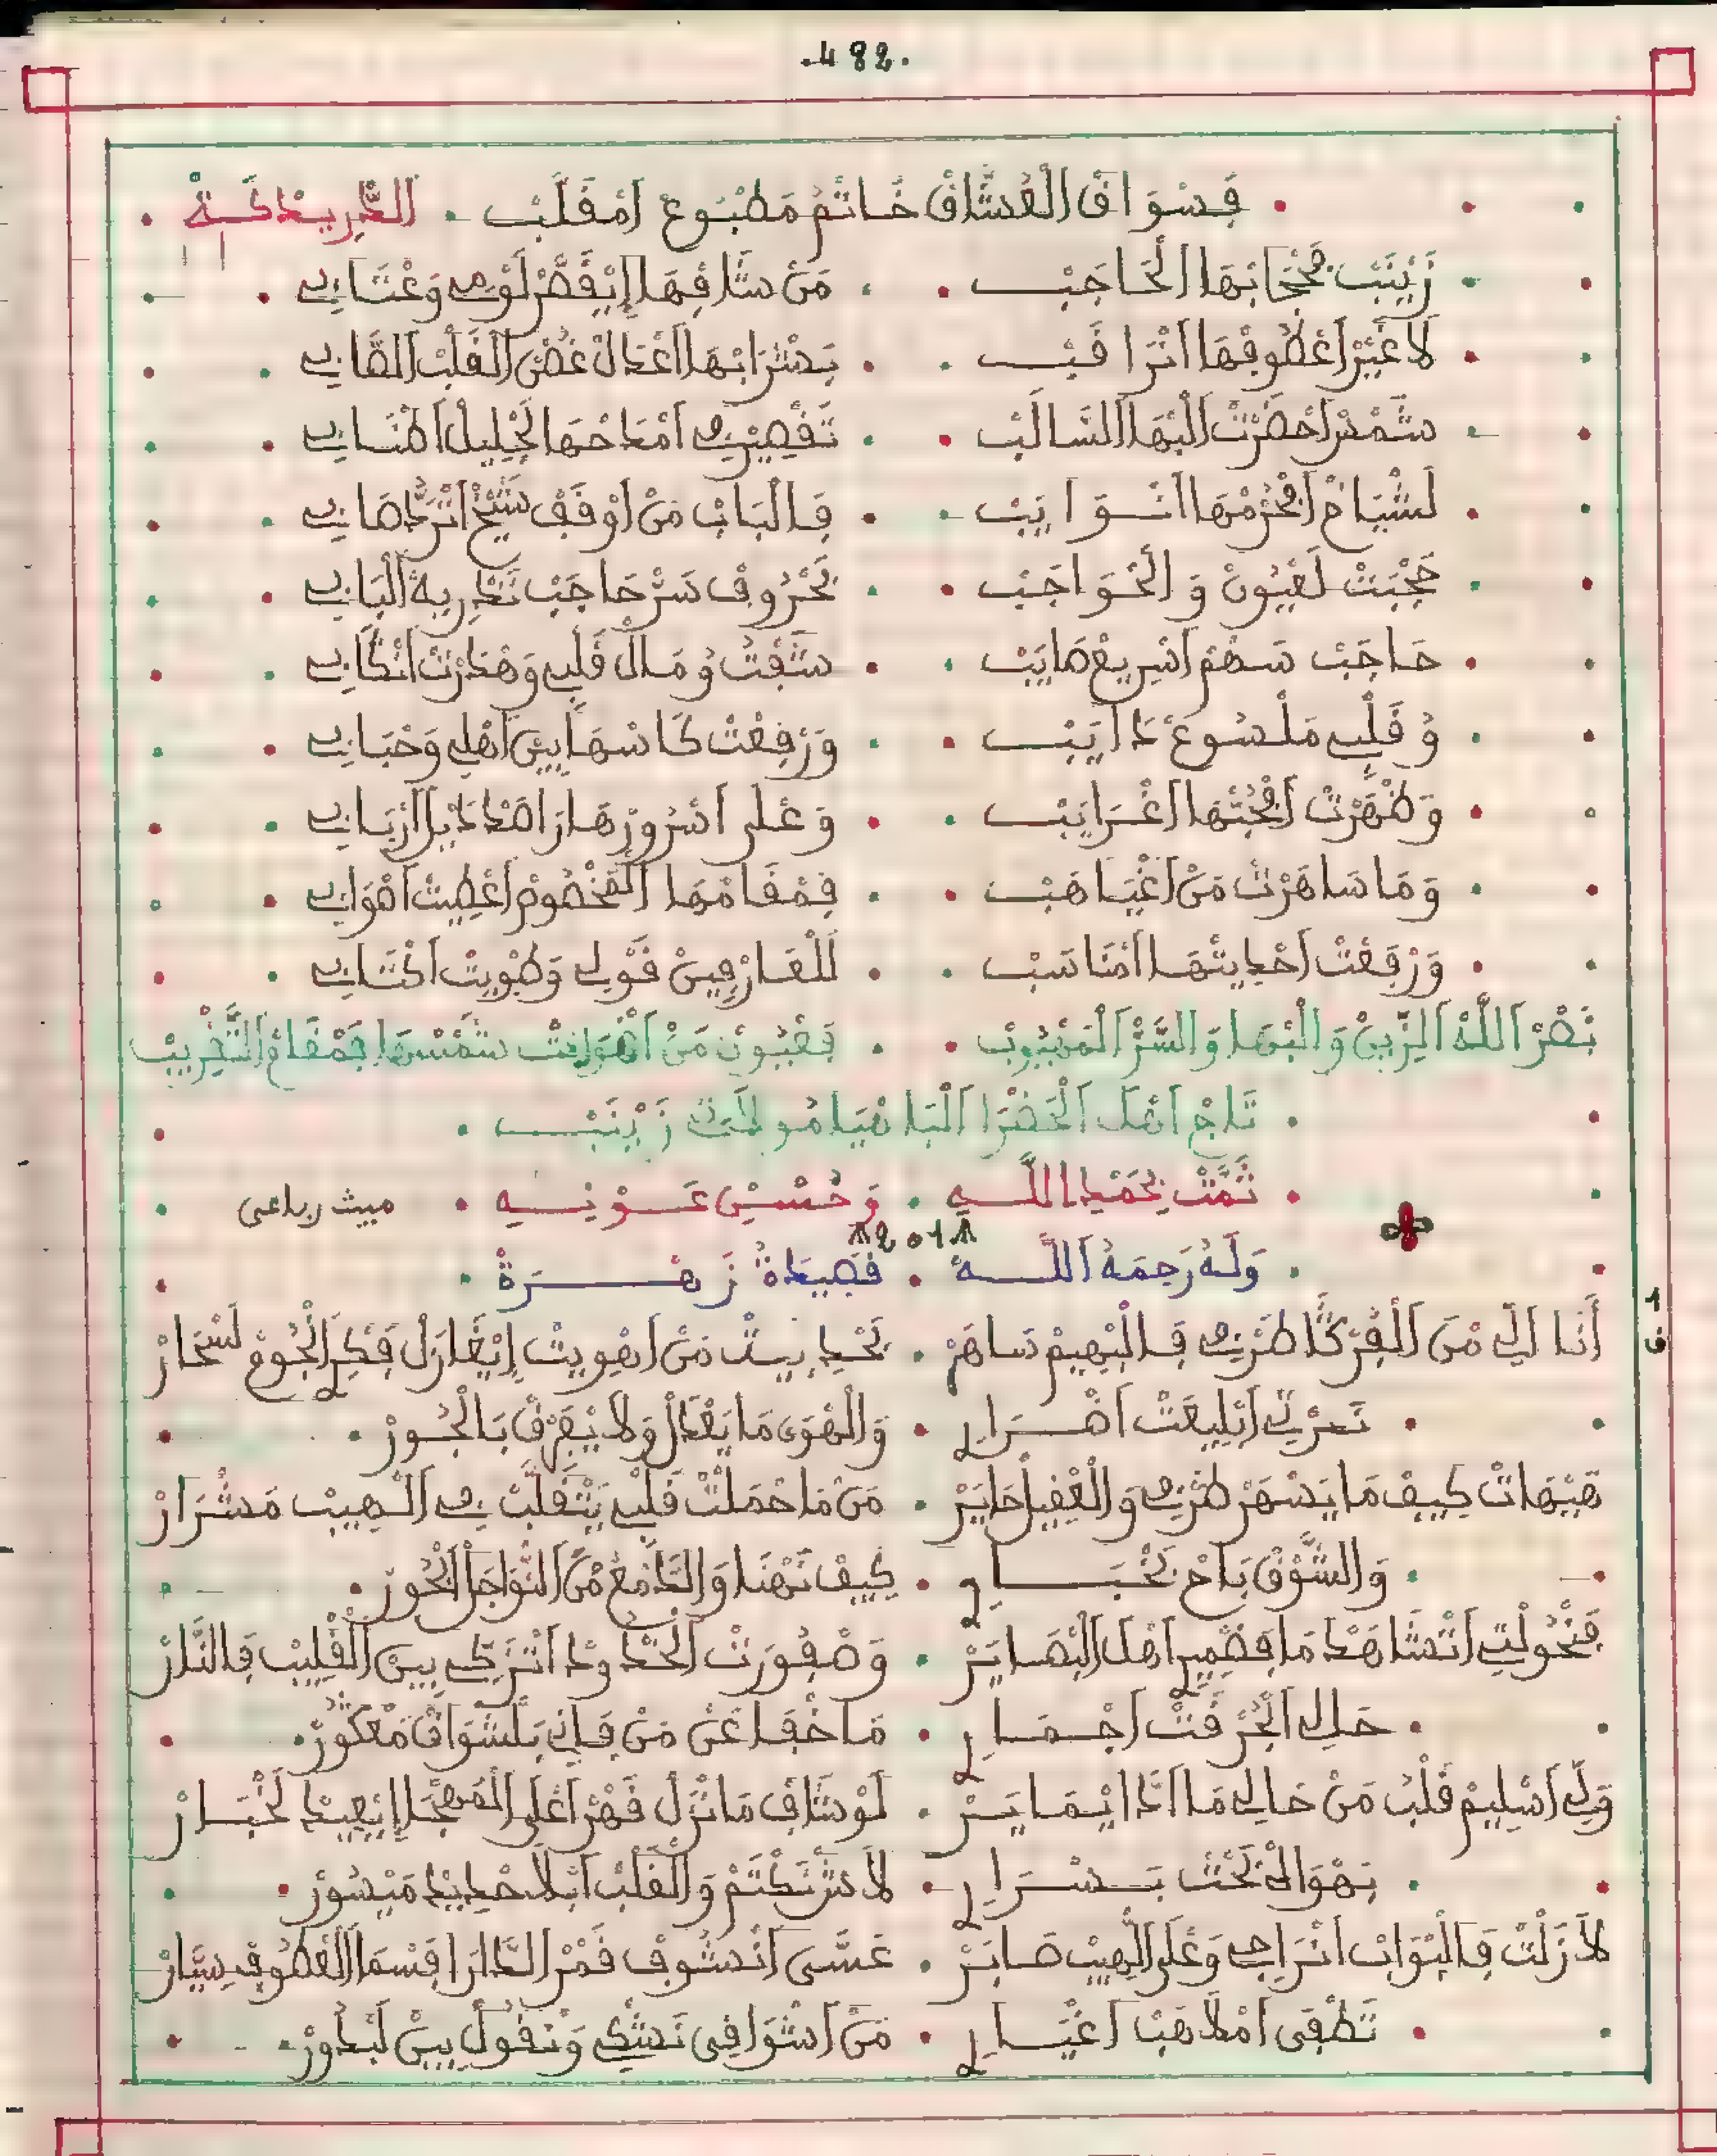 .482.
فِسْوَاقْ الْعُشَّاقْ خَاتَمْ مَطْبُوعْ اَمْقَلَّبْ . الدْرِيدَكَةْ
زَيْنَبْ حَجَّابْهَا الْحَاجَبْ . مَنْ شَافْهَا اِيْقَصَّرْ لَوْمِي وَعْتَابِي
لَا غَيْرْ اَعْطُوفْهَا انْرَاقَبْ . بَشْرَابْهَا اعْدَالْ غُصْنْ الْقَلْبْ الصَّابِي
شَمْسْ اَحْضَرْتْ الْبْهَا السَّالَبْ . تَقْصِيرِي اَمْدَاحْهَا لَجْلِيلْ اَطْنَابِي
لَشْيَاخْ اَفْحُرْمْهَا اتْوَايَبْ . فَالْبَابْ مَنْ اَوْقَفْ شَيْخْ اتْرَدْهَابِي
حَجْبَتْ لَعْيُونْ وَالْحْوَاجَبْ . بَحْرُوفْ سَرّْ حَاجَبْ نَظْرِيهْ الْبَابِي
حَاجَبْ سَهْمْ اسْرِيعْ صَايَبْ . شَفْتُ وُمَالْ قَلْبِي وَهْدَرْتْ انْكَابِي
وُقَلْبِي مَلْسُوعْ دَايَبْ . وَرْفِعْتْ كَاسْهَا بِينْ اَهْلِي وَحْبَابِي
وَظْهَرْتْ اَفْحُبّْهَا اغْرَايَبْ . وَعْلَى اسْرُورْهَا
وَمَا سَاهَرْتْ مَنْ اغْيَاهَبْ . فِمْقَامْهَا الْمَخْصُوصْ اَعْطِيتْ اَهْوَابِي
وَرْفَعْتْ اَحْدِيثْهَا امْنَاسَبْ . لَلْعَارْفِينْ قَوْلِي وَطْوِيتْ اكْتَابِي
نَصْرْ اللَّهْ الزِّينْ وَالْبْهَا وَالسَّرّْ الْمَهْيُوبْ . فَعْيُونْ مَنْ اَهْوَاتْ شَمْسْهَا فَمْقَامْ التَّغْرِيبْ
تَاجْ اهْلْ الْحَضْرَا الْبَاهْيَا مُولَاتِي زَيْنَبْ
تَمَّتْ بِحَمْدِ اللَّهِ . وَحُسْنِ عَوْنِهِ . مبيت رباعي
وَلَهُ رَحِمَهُ اللَّهُ . قَصِيدَةُ زَهْرَةْ
أَنَا اَلِّي مْنَ الْفِرْكَا طَرْفِي فَالْبْهِيمْ سَاهَرْ . بَحْدِيثْ مَنْ اهْوِيتْ اِيْغَازَلْ فَكْرِي لَسْحَارْ
نَسْرِي اَيْلِيعَتْ اضْرَارِي . وَالْهْوَى مَا يَعْدَلْ وَلَا يْفَرَّقْ بَالْجُورْ
هَيْهَاتْ كِيفْ مَا يَسْهَرْ طَرْفِي وَالْعْقِيلْ حَايَرْ . مَنْ مَا حْمَلْتْ قَلْبِي يَتْقَلَّبْ فِي الْهِيبْ مَشْرَارْ
وَالشُّوقْ بَاحْ بَخْبَارِي . كِيفْ نَهْنَا وَالدّْمَعْ مْنْ النّْوَاجَلْ ابْحُورْ
فَنْحُولْتِي اتْشَاهَدْ مَا فَضْمِيرْ اهْلْ الْبْصَايَرْ . وَصْفُورَتْ الْخْدُودْ اتْزَكِّي بِينْ الْقْلِيبْ فَالنَّارْ
حَالِي الْحُرْقَتْ اجْمَارِي . مَا خْفَا عَنْ مَنْ فَانِي بَلْشْوَاقْ مَعْكُورْ
وَلِّي اسْلِيمْ قَلْبُ مَنْ حَالِي مَا ادَّا ايْمَايَرْ . لَوْ شَافْ مَا نْزَلْ قَهْرْ اعْلَى الْمَهْجَا اِيْعِيدْ لَخْبَارْ
نَهْوَا تَحْتْ بَسْرَارِي . لَا سَرّْ نَكْتَمْ وَالْقَلْبْ ابْلَا حْدِيدْ مَيْسُورْ
لَا زَلْتْ فَالْبْوَابْ انْرَاجِي وَعْلَى الْهِيبْ صَابَرْ . عَسَّى انْشُوفْ قَمْرْ الدَّارَا فَسْمَا الْعْطُوفْ سِيَّارْ
تَطْفَى اَمْلَاهَبْ اغْيَارِي . مَنْ اشْوَاقِي نَشْكِي وَنْقُولْ بِينْ لَبْدُورْ